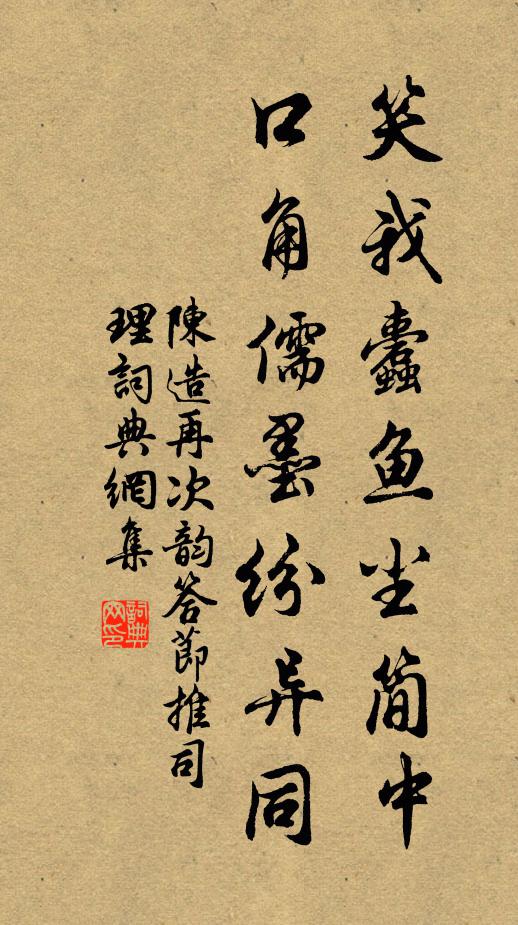 笑我蠹鱼尘简中
口角儒墨纷异同
陳造再次韵答節推司
理詞典網集
詞典
网印